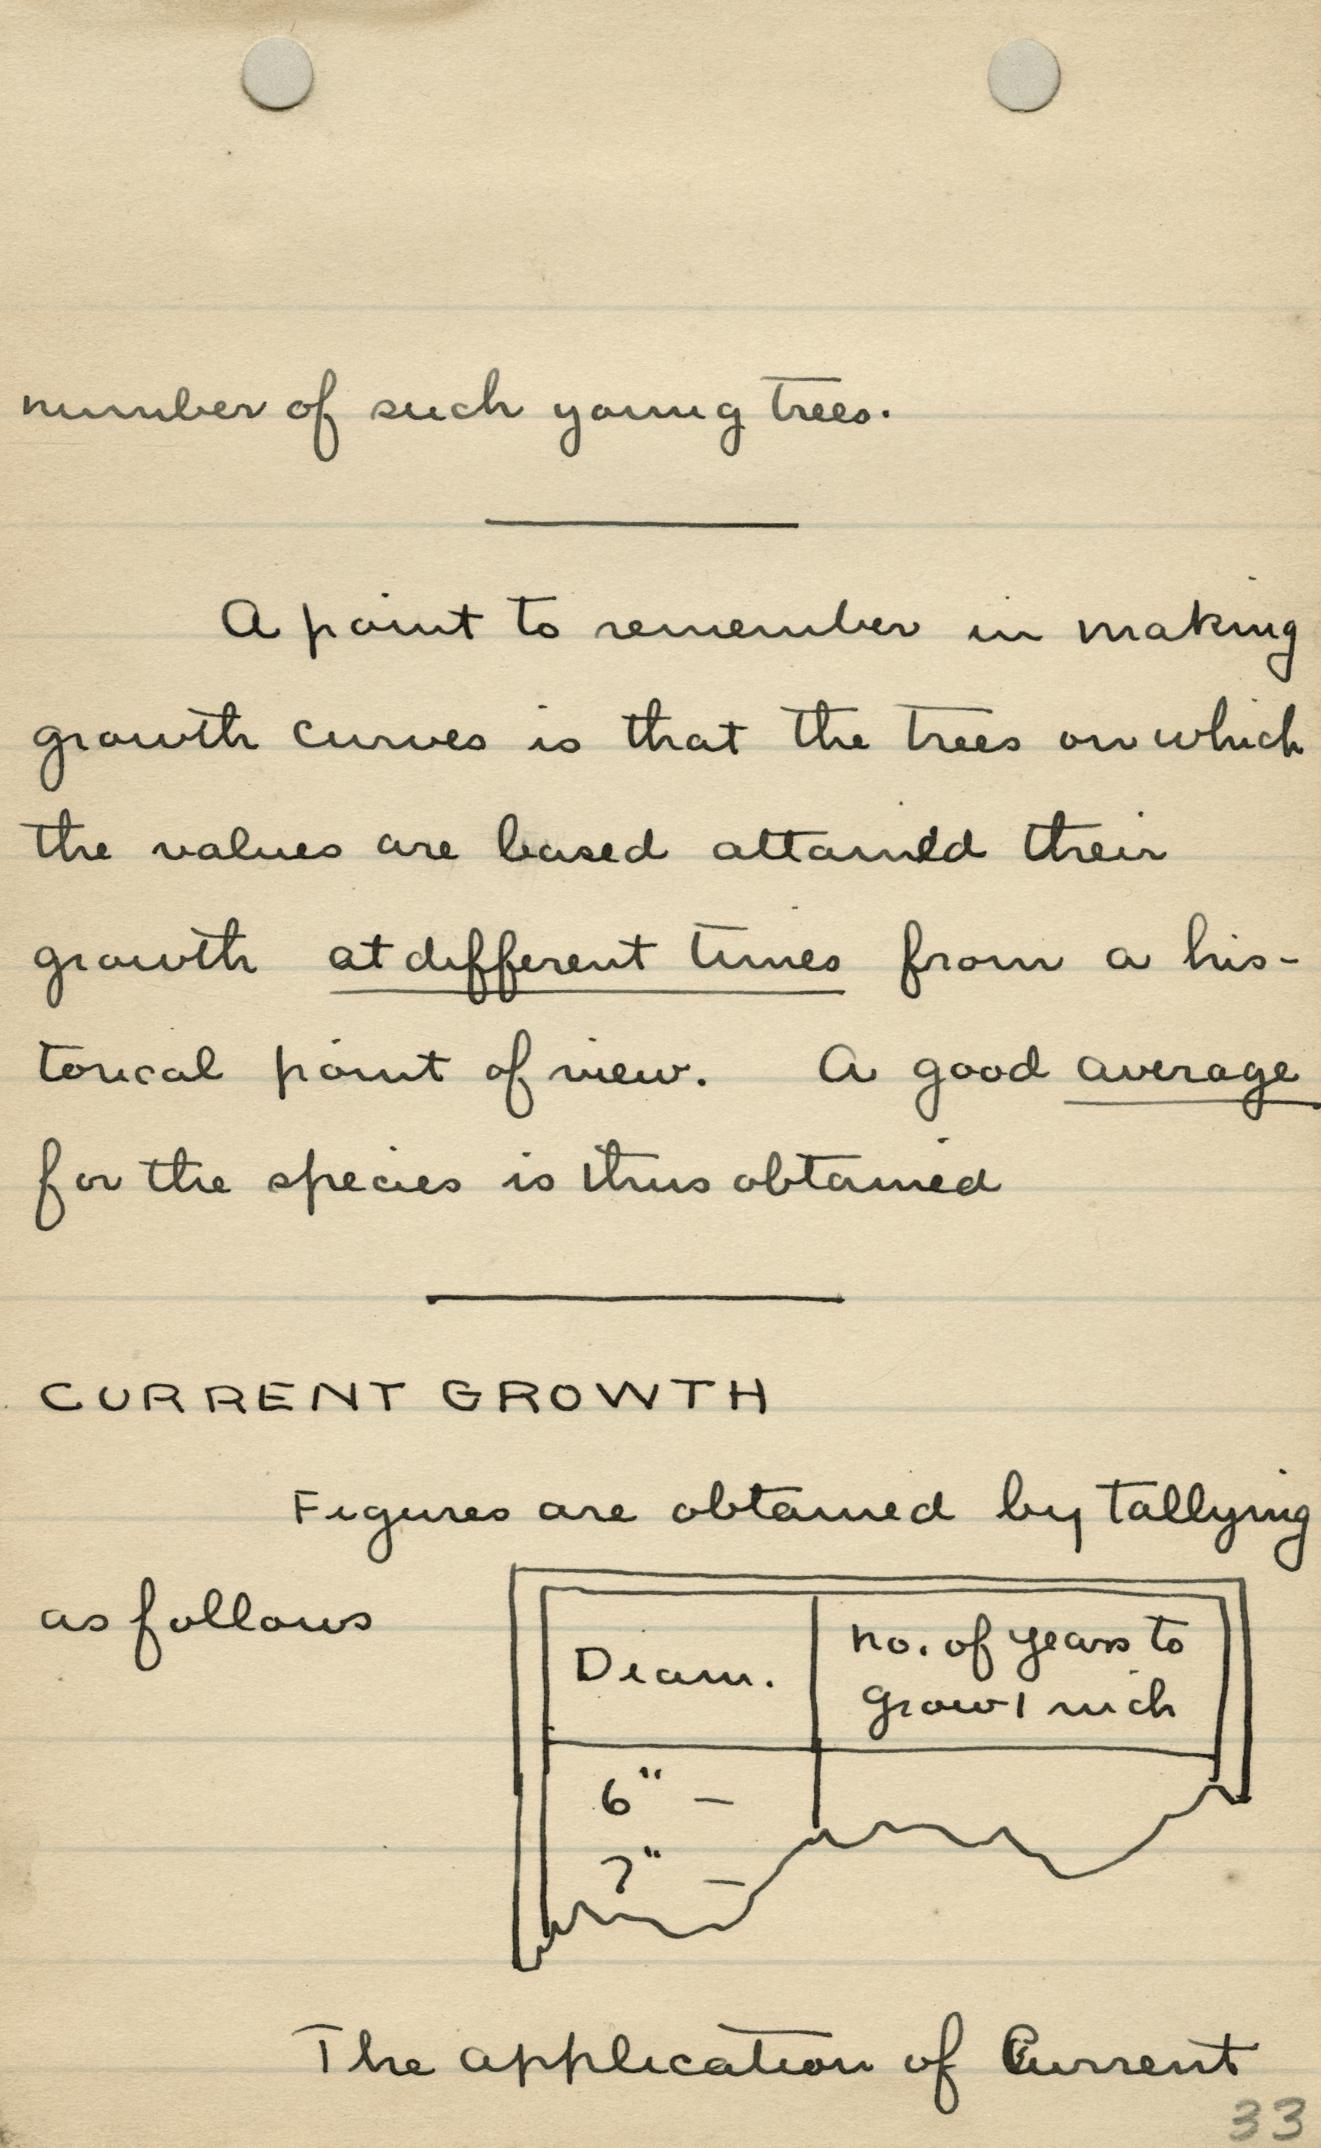 number of such young trees.
A point to remember in making
growth curves is that the trees on which
the values are based attained their
growth at different times from a his-
torical point of view. A good average
for the species is thus obtained
CURRENT GROWTH
Figures are obtained by tallying
as follows
Diam.
no. of years to
grow 1 inch
6" –
7" –
The application of Current
33